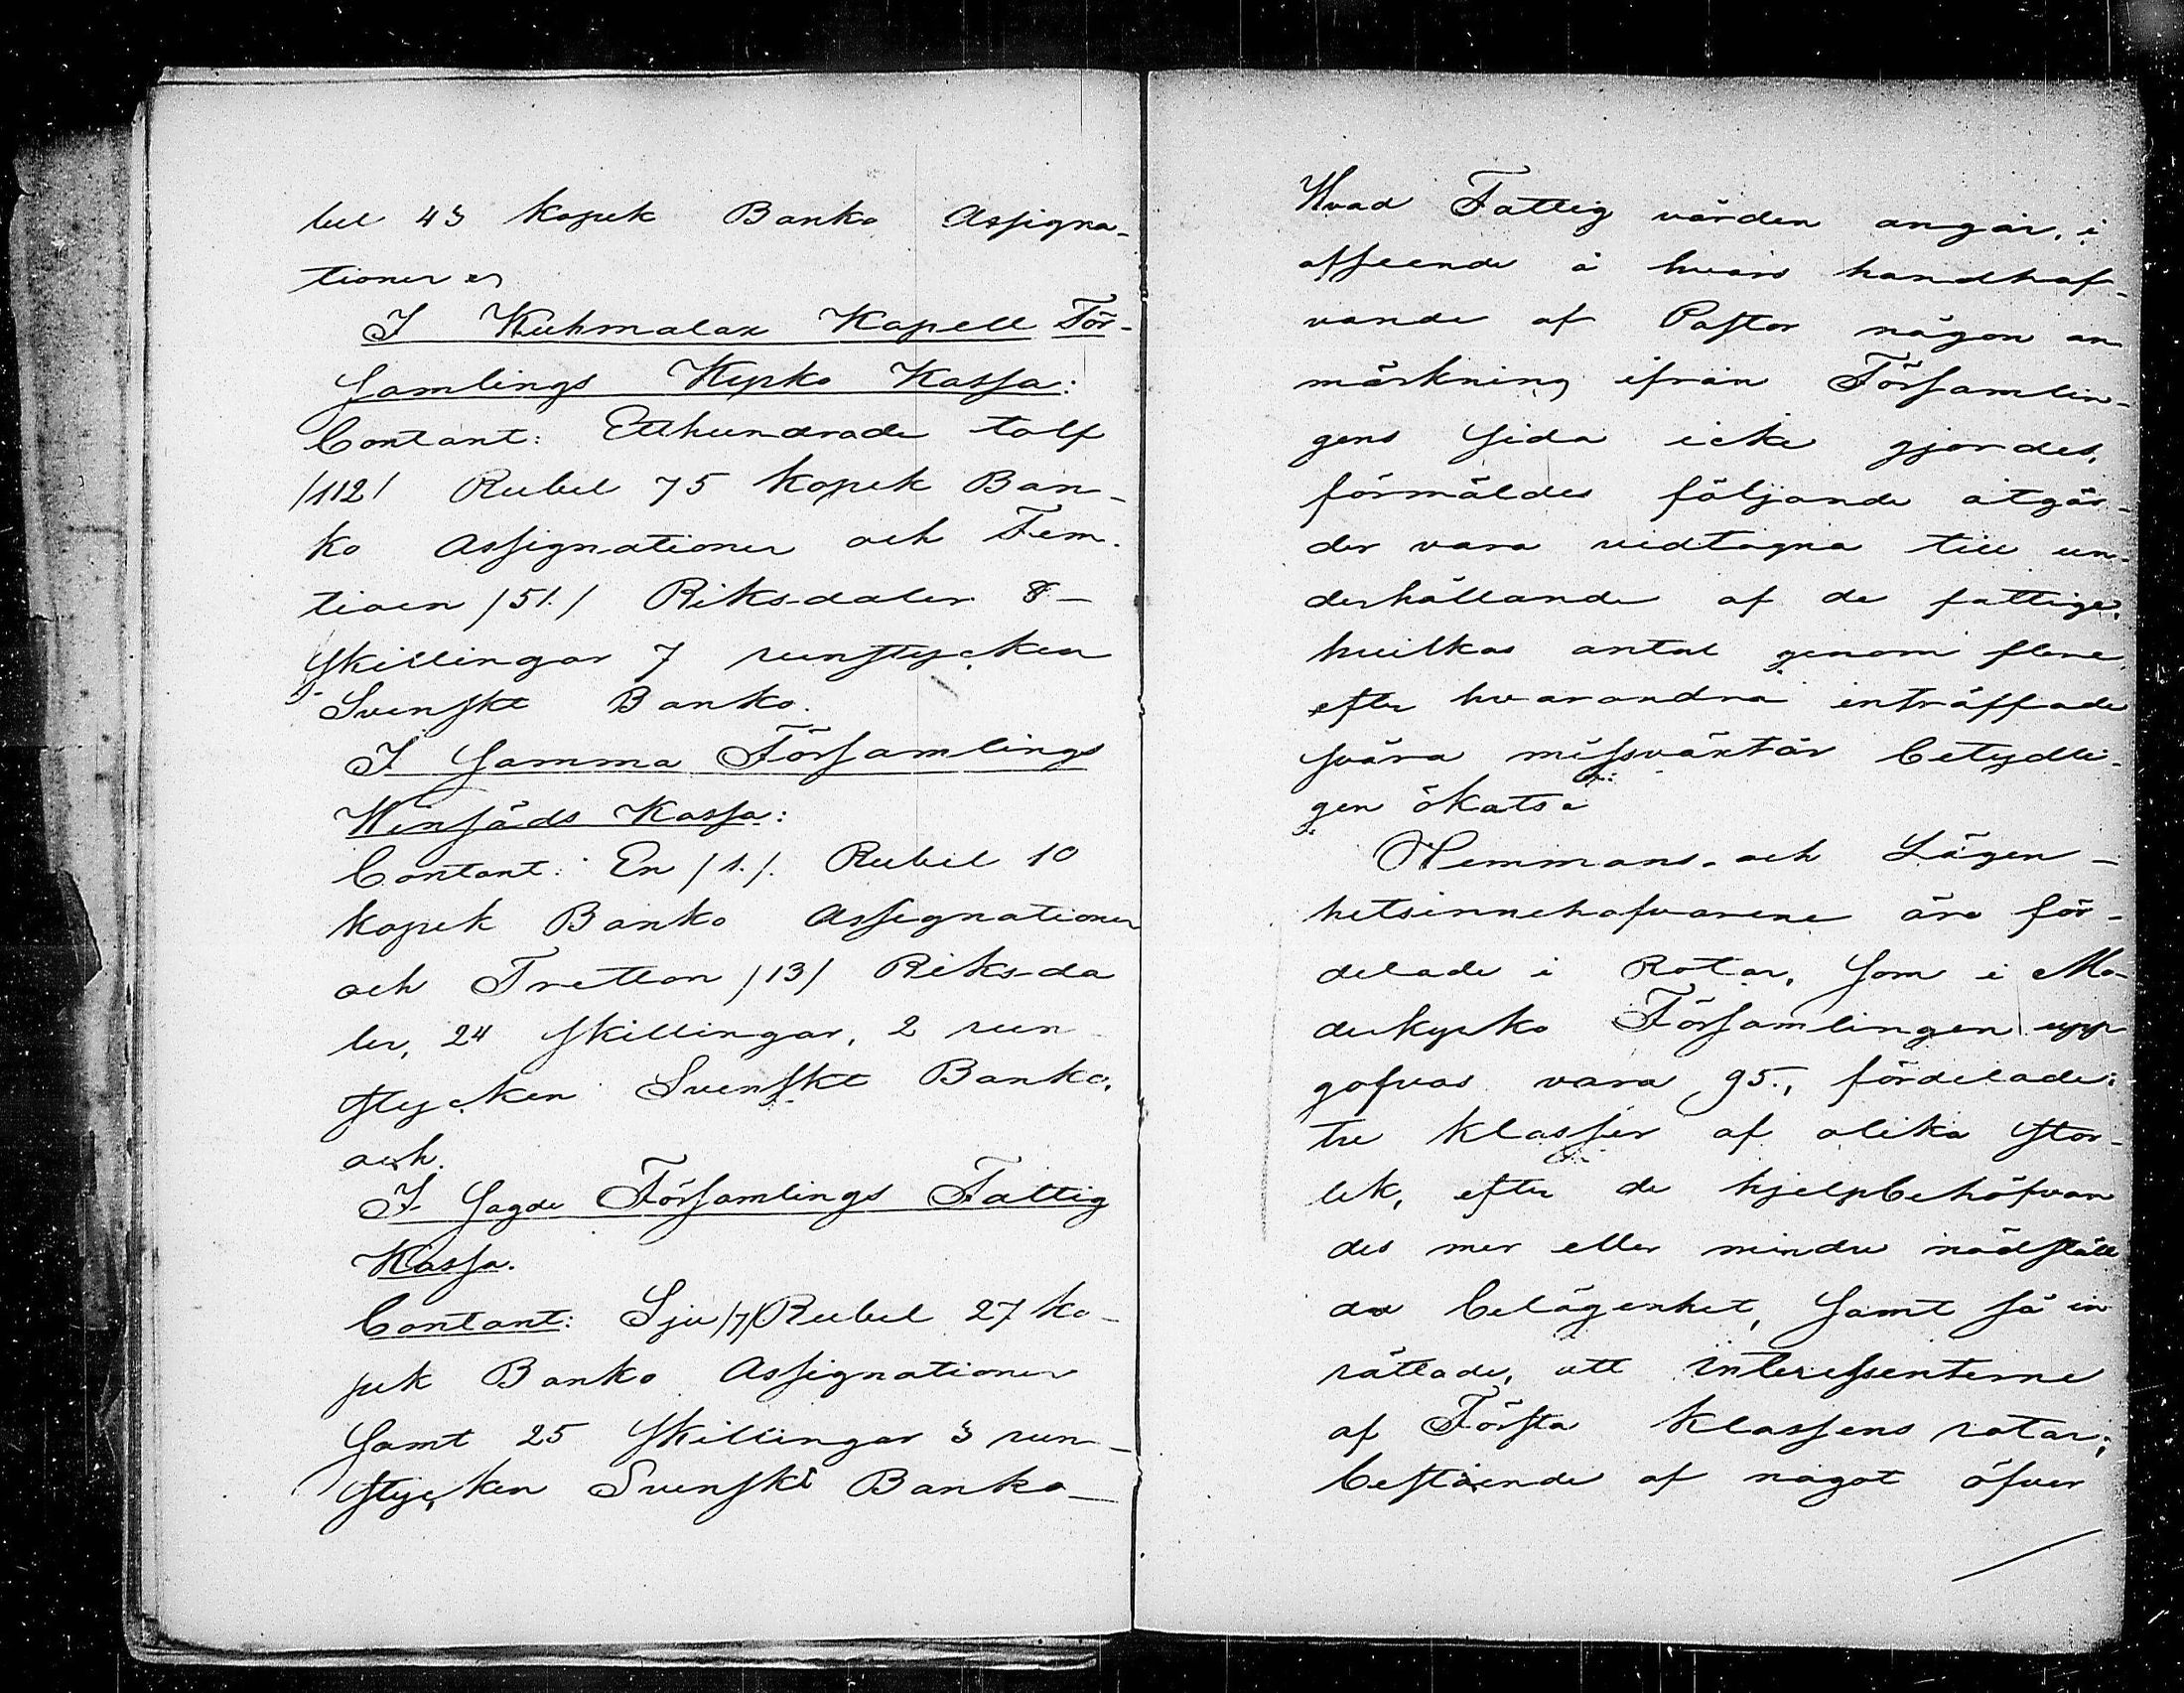 bel 43 kopek Banko Assigna-
tioner
I Kuhmalax Kapell För-
samlings Kyrko Kassa:
Contant: Etthundrade tolf
/112/ Rubel 75 kopek Ban-
ko Assignationer och Fem-
tioen /51./ Riksdaler 8-
skillingar 7 runstycken
Svenskt Banko.
I samma Församlings
Winsäds Kassa:
Contant: En /1./. Rubel 10
kopek Banko Assignationer
och Tretton /13/ Riksda
ler, 24 skillingar, 2 run
stycken Svenskt Banko,
och.
I sagde Församlings Fattig
Kassa.
Contant: Sju /7/ Rubel 27 ko-
pek Banko Assignationer
samt 25 skillingar 3 run-
stycken Svenskt Banko-
Hvad Fattig vården angår, i
afseende å hvars handhaf-
vande af Pastor någon an
märkning ifrån Församlin-
gens sida icke gjordes,
förmäldes följande åtgär-
der vara vidtagna till un-
derhållande af de fattige,
hvilkas antal genom flere,
efter hvarandra inträffade
svåra missväxtår betydli-
gen ökats
Hemmans- och Lägen-
hetsinnehafvarene äro för-
delade i Rotar, som i Mo-
derkyrko Församlingen upp
gafvos vara 95., fördelade i
tre klasser af olika stor-
lek, efter de hjelpbehöfvan
des mer eller mindre nödställ
da belägenhet, samt så in
rättade, att interessenterne
af Första klassens rotar,
bestående af något öfver